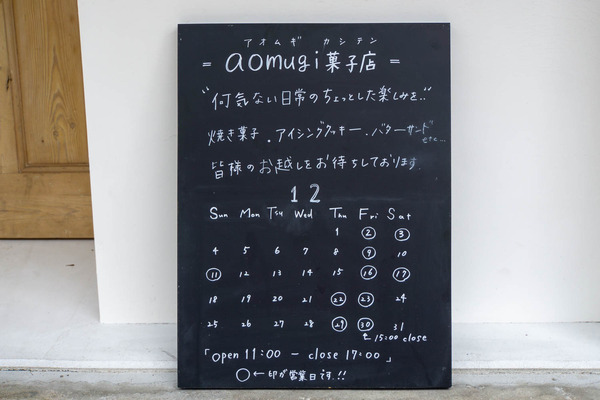 アオムギ カシテン
= aomugi菓子店 =
"何気ない日常のちょっとした楽しみを.."
焼き菓子.アイシングクッキー.バターサンド etc...
皆様のお越しをお待ちしております.
12
Sun Mon Tsu Wed Thu Fri Sat
1 2 3
4 5 6 7 8 9 10
11 12 13 14 15 16 17
18 19 20 21 22 23 24
25 26 27 28 29 30 31
15:00 close
「open 11:00 - close 17:00」
○←印が営業日です.!!